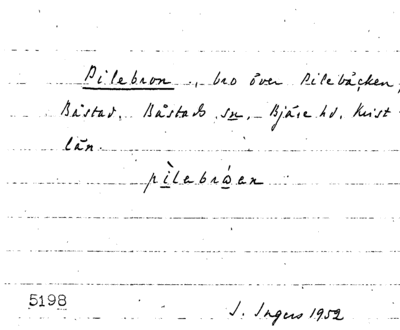 Pilebron, bro över Pilebäcken,
Båstad, Båstads sn, Bjäre hd, Krist
län.
pìlebrǻen
5198
I. Ingers 1952